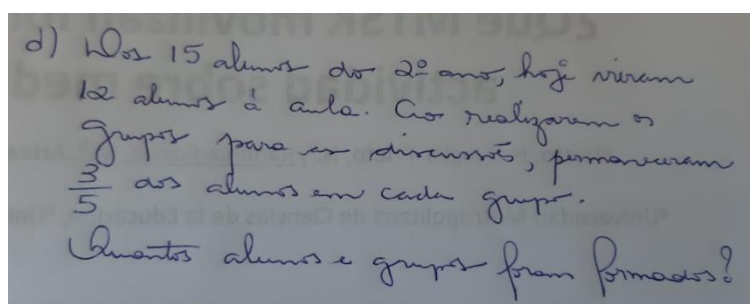 d) Dos 15 alunos do 2º ano, hoje vieram
12 alunos à aula. Ao realizarem os
grupos para as discussões, permaneceram
3/5 dos alunos em cada grupo.
Quantos alunos e grupos foram formados?